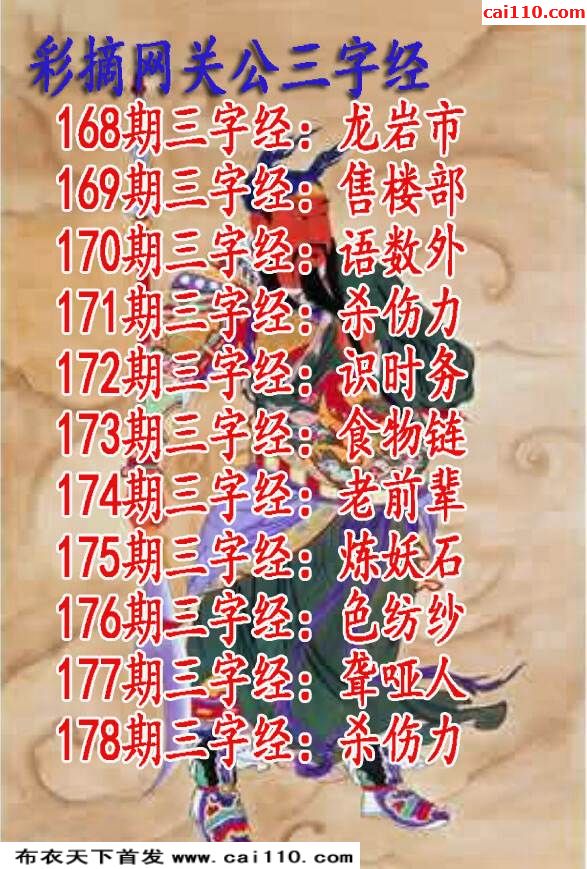 cai110.com
彩摘网关公三字经
168期三字经：龙岩市
169期三字经：售楼部
170期三字经：语数外
171期三字经：杀伤力
172期三字经：识时务
173期三字经：食物链
174期三字经：老前辈
175期三字经：炼妖石
176期三字经：色纺纱
177期三字经：聋哑人
178期三字经：杀伤力
布衣天下首发 www.cai110.com